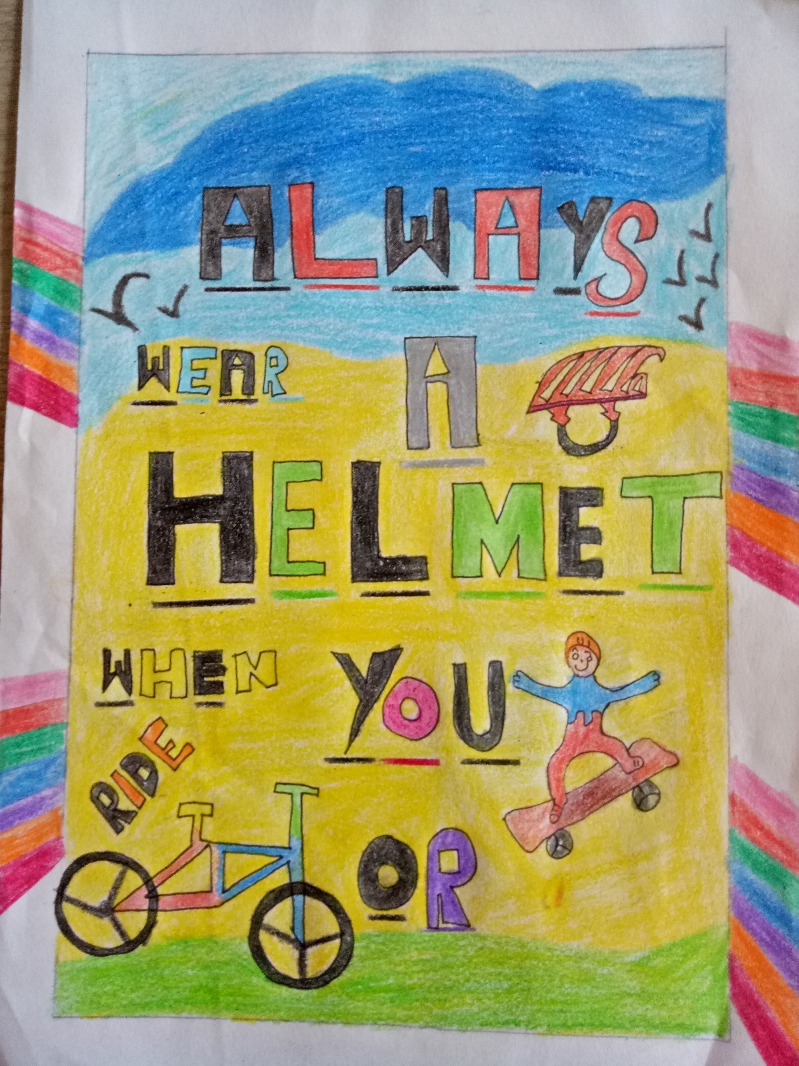 ALWAYS
WEAR A
HELMET
WHEN YOU
RIDE
OR